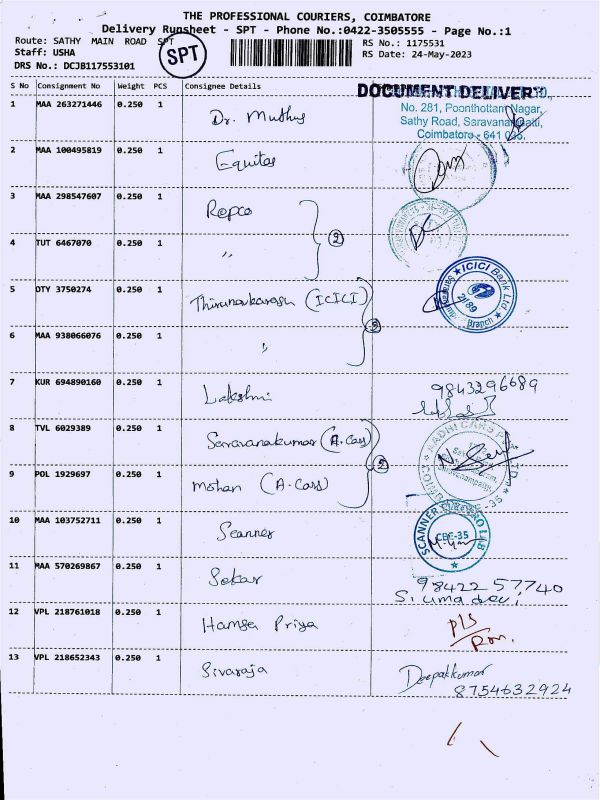 THE PROFESSIONAL COURIERS, COIMBATORE
Delivery Runsheet - SPT - Phone No.:0422-3505555 - Page No.:1
Route: SATHY MAIN ROAD SPT
Staff: USHA
DRS No.: DCJB117553101
SPT
RS No.: 1175531
RS Date: 24-May-2023
S No Consignment No Weight PCS Consignee Details
DOCUMENT DELIVERY
1 MAA 263271446 0.250 1 Dr. Muthus
No. 281, Poonthottam Nagar,
Sathy Road, Saravanampatti,
Coimbatore - 641 035.
2 MAA 100495819 0.250 1 Equitas
3 MAA 298547607 0.250 1 Repco
2
4 TUT 6467070 0.250 1 〃
5 OTY 3750274 0.250 1 Thirunavkarasu (ICICI)
ICICI Bank Ltd
Branch
6 MAA 938066076 0.250 1 〃
7 KUR 694890160 0.250 1 Lakshmi 9843296689
8 TVL 6029389 0.250 1 Saravanakumar (A. Cars)
2
9 POL 1929697 0.250 1 Mohan (A. Cars)
10 MAA 103752711 0.250 1 Scanner
CBE-35
11 MAA 570269867 0.250 1 Sekar 98422 57740
S. Uma devi
12 VPL 218761018 0.250 1 Hamsa Priya
13 VPL 218652343 0.250 1 Sivaraja Deepakkumar
8754632924